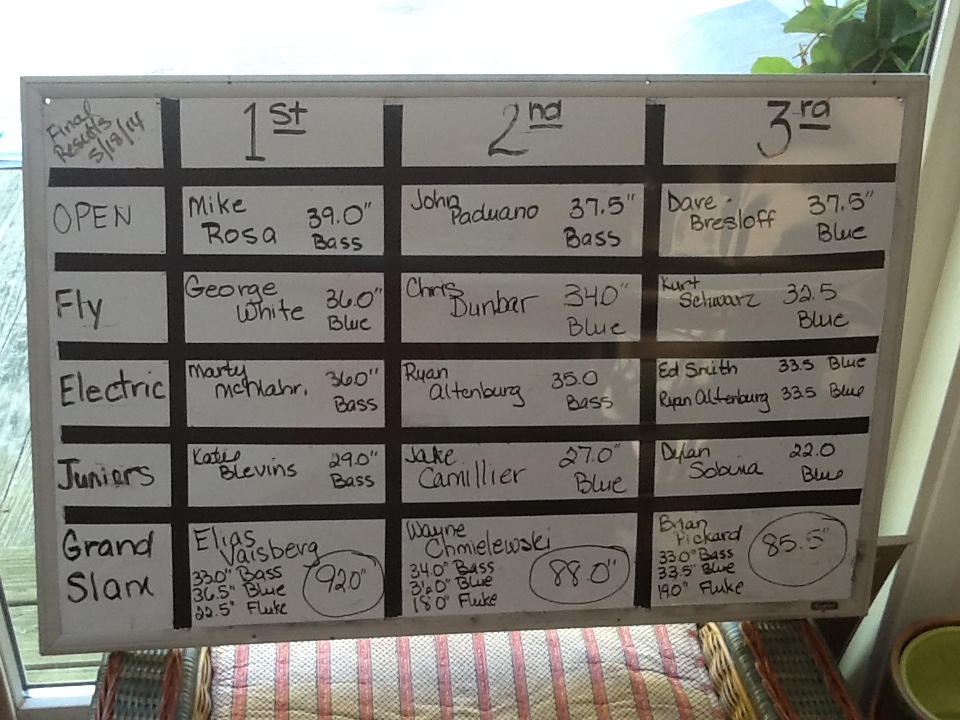 Final
Results
5/18/14
1st
2nd
3rd
OPEN
Mike
Rosa
39.0"
Bass
John
Paduano
37.5"
Bass
Dave
Bresloff
37.5"
Blue
Fly
George
White
36.0"
Blue
Chris
Dunbar
34.0"
Blue
Kurt
Schwarz
32.5
Blue
Electric
Marty
36.0"
Bass
Ryan
Altenburg
35.0
Bass
Ed Smith 33.5 Blue
Ryan Altenburg 33.5 Blue
Juniors
Katie
Blevins
29.0"
Bass
Jake
Camillier
27.0"
Blue
Dylan
22.0
Blue
Grand
Slam
Elias
Vaisberg
33.0" Bass
36.5" Blue
22.5" Fluke
92.0"
Wayne
Chmielewski
34.0" Bass
36.0" Blue
18.0" Fluke
88.0"
Brian
Pickard
33.0" Bass
33.5" Blue
19.0" Fluke
85.5"